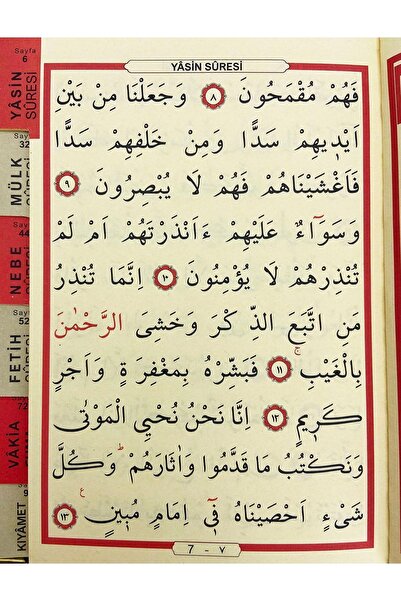 YÂSİN SÛRESİ
فَهُمْ مُقْمَحُونَ ﴿٨﴾ وَجَعَلْنَا مِنْ بَيْنِ
اَيْدٖيهِمْ سَدًّا وَمِنْ خَلْفِهِمْ سَدًّا
فَاَغْشَيْنَاهُمْ فَهُمْ لَا يُبْصِرُونَ ﴿٩﴾
وَسَوَٓاءٌ عَلَيْهِمْ ءَاَنْذَرْتَهُمْ اَمْ لَمْ
تُنْذِرْهُمْ لَا يُؤْمِنُونَ ﴿١٠﴾ اِنَّمَا تُنْذِرُ
مَنِ اتَّبَعَ الذِّكْرَ وَخَشِىَ الرَّحْمٰنَ
بِالْغَيْبِۚ ﴿١١﴾ فَبَشِّرْهُ بِمَغْفِرَةٍ وَاَجْرٍ
كَرٖيمٍ ﴿١٢﴾ اِنَّا نَحْنُ نُحْيِ الْمَوْتٰى
وَنَكْتُبُ مَا قَدَّمُوا وَاٰثَارَهُمْؕ وَكُلَّ
شَیْءٍ اَحْصَيْنَاهُ فٖٓى اِمَامٍ مُبٖينٍࣖ ﴿١٣﴾
7 - ٧
Sayfa
6
YÂSİN
SÛRESİ
32
MÜLK
44
NEBE
52
FETİH
72
VÂKIA
KIYÂMET